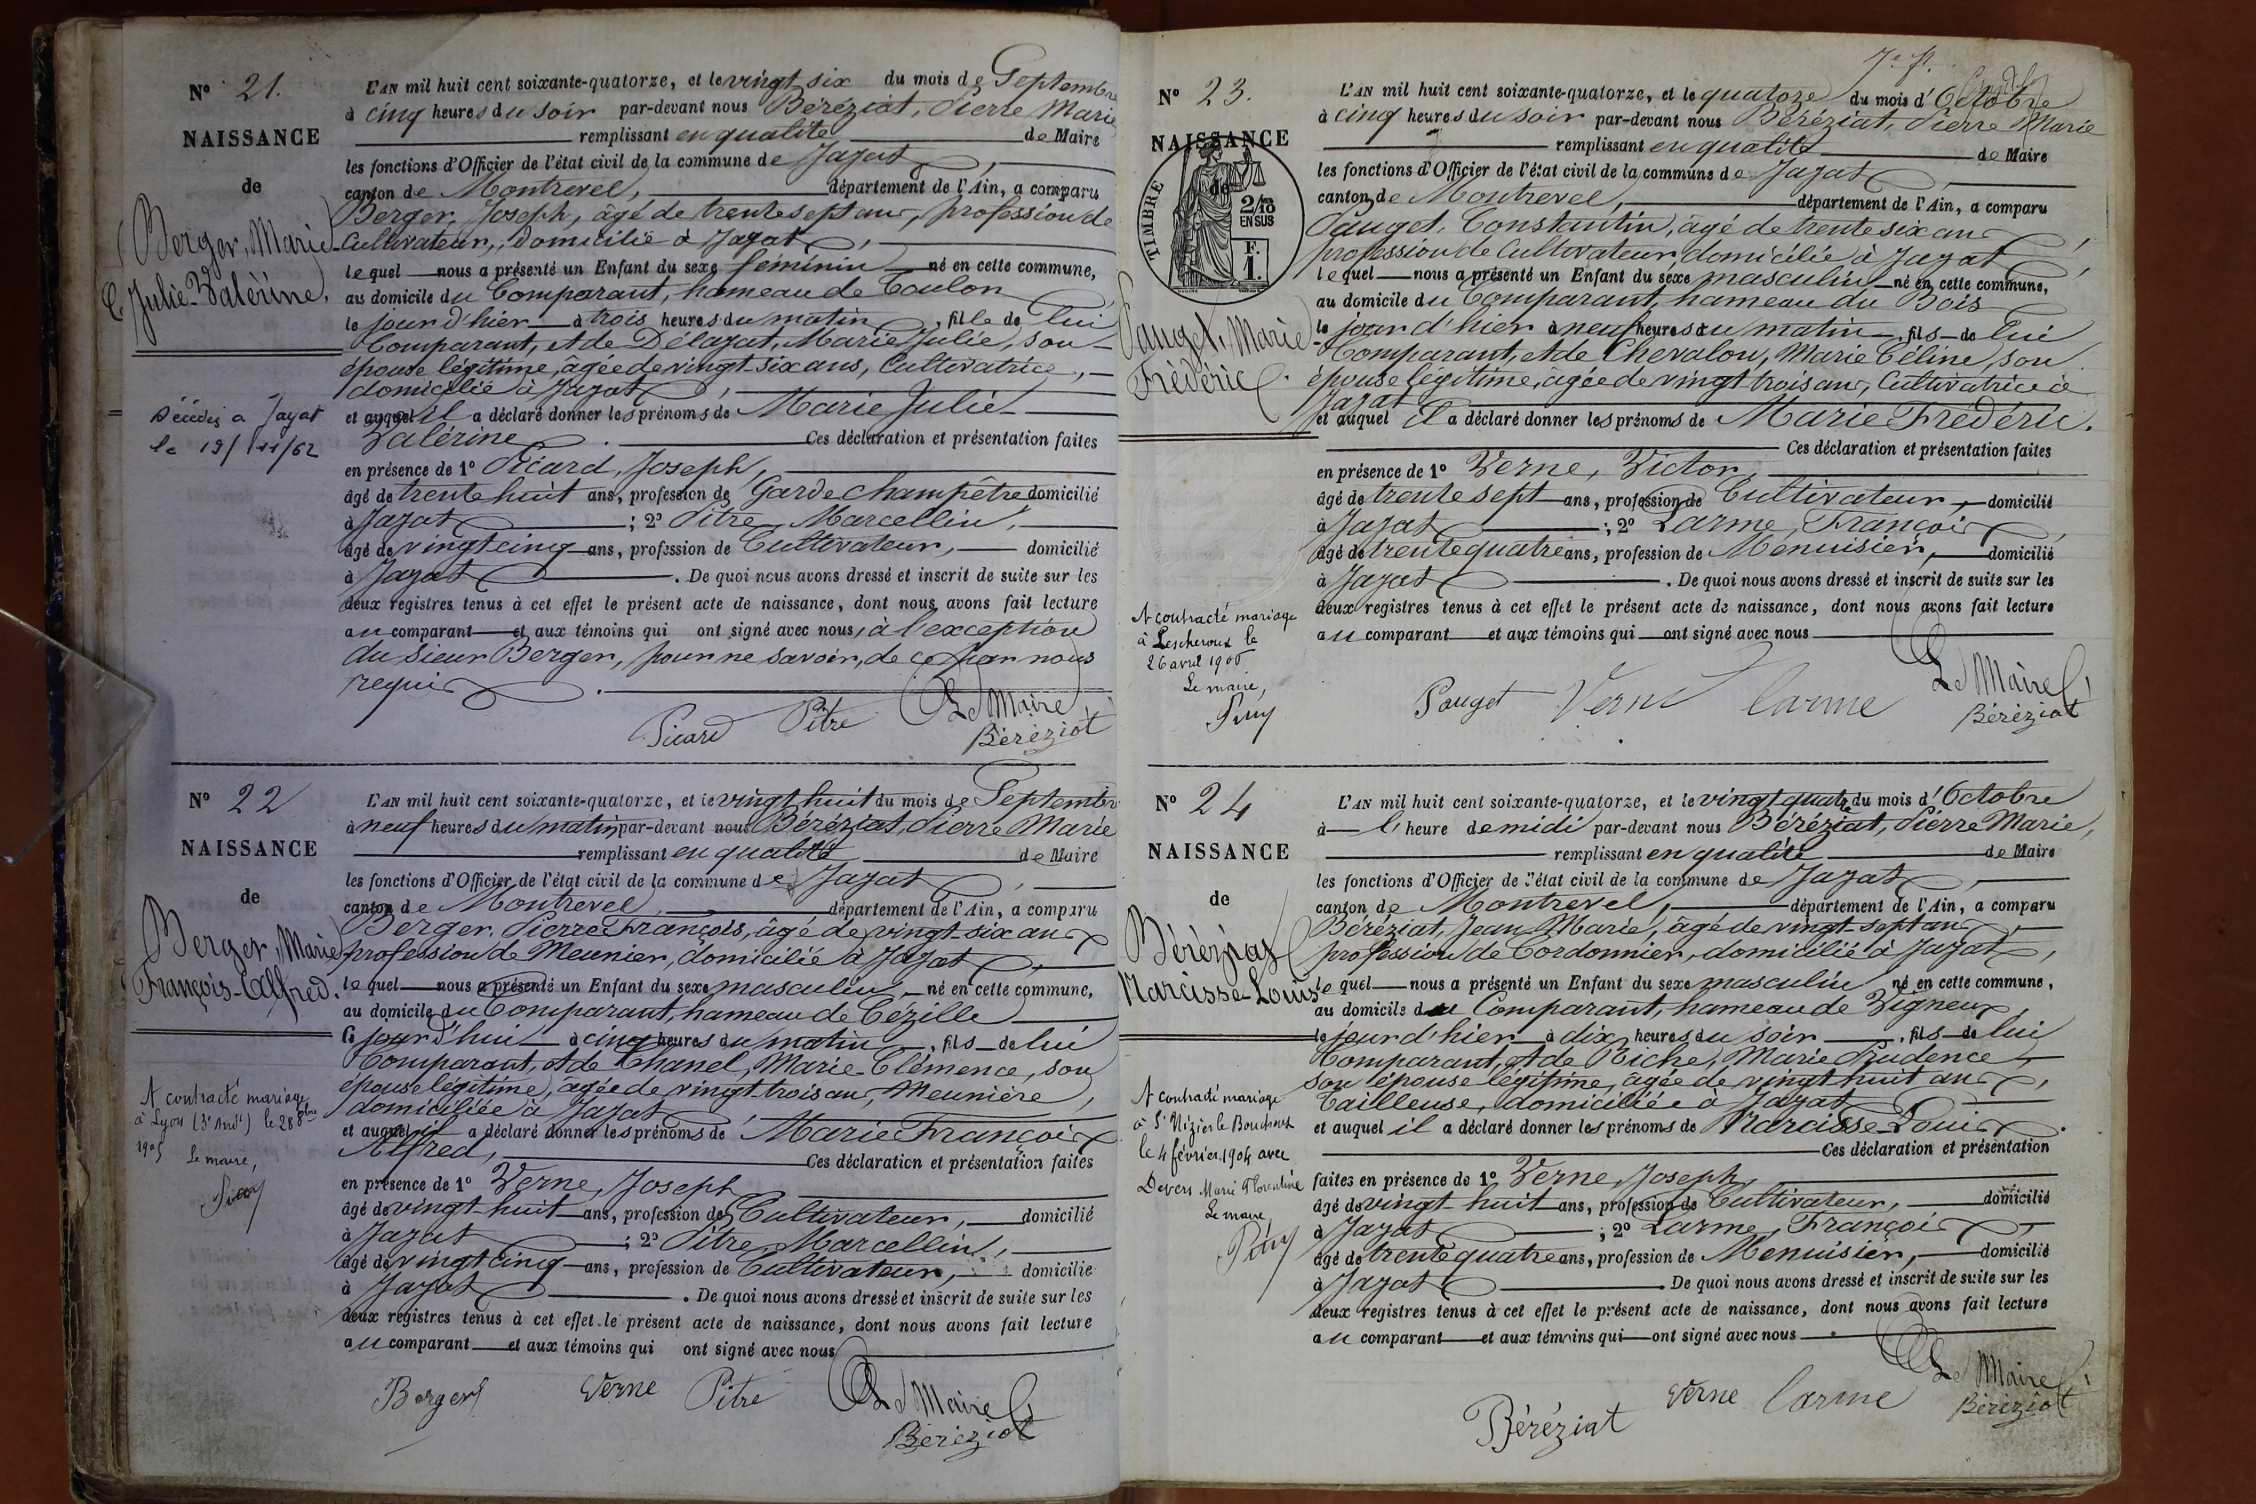 N° 21.
NAISSANCE
de
Berger, Marie
Julie-Valérine.
Décédée à Jayat
le 19/11/62
L'AN mil huit cent soixante-quatorze, et le vingt six du mois de Septembre
à cinq heures du soir par-devant nous Béréziat, Pierre Marie
remplissant en qualité de Maire
les fonctions d'Officier de l'état civil de la commune de Jayat,
canton de Montrevel, département de l'Ain, a comparu
Berger, Joseph, âgé de trente sept ans, profession de
Cultivateur, domicilié à Jayat,
lequel nous a présenté un Enfant du sexe féminin né en cette commune,
au domicile du Comparant, hameau de Coulon
le jour d'hier à trois heures du matin, fille de lui
Comparant, et de Délayat, Marie Julie, son
épouse légitime, âgée de vingt-six ans, Cultivatrice,
domiciliée à Jayat,
et auquel il a déclaré donner les prénoms de Marie Julie
Valérine. Ces déclaration et présentation faites
en présence de 1° Picard, Joseph,
âgé de trente huit ans, profession de Garde champêtre domicilié
à Jayat ; 2° Pitre, Marcellin,
âgé de vingt cinq ans, profession de Cultivateur, domicilié
à Jayat. De quoi nous avons dressé et inscrit de suite sur les
deux registres tenus à cet effet le présent acte de naissance, dont nous avons fait lecture
au comparant et aux témoins qui ont signé avec nous, à l'exception
du sieur Berger, pour ne savoir, de ce par nous
requis.
Picard Pitre Le Maire
Béréziat
N° 22
NAISSANCE
de
Berger, Marie
François-Alfred.
A contracté mariage
à Lyon (3e Arrdt) le 28 8bre
1905
Le maire,
L'AN mil huit cent soixante-quatorze, et le vingt huit du mois de Septembre
à neuf heures du matin par-devant nous Béréziat, Pierre Marie
remplissant en qualité de Maire
les fonctions d'Officier de l'état civil de la commune de Jayat,
canton de Montrevel, département de l'Ain, a comparu
Berger, Pierre François, âgé de vingt-six ans
profession de Meunier, domicilié à Jayat,
lequel nous a présenté un Enfant du sexe masculin, né en cette commune,
au domicile du Comparant, hameau de Cézille
Ce jourd'hui à cinq heures du matin, fils de lui
Comparant, et de Chanel, Marie-Clémence, son
épouse légitime, âgée de vingt trois ans, Meunière,
domiciliée à Jayat
et auquel il a déclaré donner les prénoms de Marie François
Alfred, Ces déclaration et présentation faites
en présence de 1° Verne, Joseph
âgé de vingt-huit ans, profession de Cultivateur, domicilié
à Jayat ; 2° Pitre, Marcellin,
âgé de vingt cinq ans, profession de Cultivateur, domicilié
à Jayat. De quoi nous avons dressé et inscrit de suite sur les
deux registres tenus à cet effet le présent acte de naissance, dont nous avons fait lecture
au comparant et aux témoins qui ont signé avec nous
Berger Verne Pitre Le Maire
Béréziat
7e f.
N° 23.
NAISSANCE
de
TIMBRE
2/10
EN SUS
F.
1.
Pauget, Marie
Frédéric.
A contracté mariage
à Lescheroux le
26 avril 1900
Le maire,
L'AN mil huit cent soixante-quatorze, et le quatorze du mois d'Octobre
à cinq heures du soir par-devant nous Béréziat, Pierre Marie
remplissant en qualité de Maire
les fonctions d'Officier de l'état civil de la commune de Jayat,
canton de Montrevel, département de l'Ain, a comparu
Pauget, Constantin, âgé de trente six ans,
profession de Cultivateur, domicilié à Jayat,
lequel nous a présenté un Enfant du sexe masculin né en cette commune,
au domicile du Comparant, hameau du Bois
le jour d'hier à neuf heures du matin, fils de lui
Comparant, et de Chevalon, Marie Céline, son
épouse légitime, âgée de vingt trois ans, Cultivatrice à
Jayat
et auquel il a déclaré donner les prénoms de Marie Frédéric.
Ces déclaration et présentation faites
en présence de 1° Verne, Victor,
âgé de trente sept ans, profession de Cultivateur, domicilié
à Jayat ; 2° Larme, François,
âgé de trente quatre ans, profession de Menuisier, domicilié
à Jayat. De quoi nous avons dressé et inscrit de suite sur les
deux registres tenus à cet effet le présent acte de naissance, dont nous avons fait lecture
au comparant et aux témoins qui ont signé avec nous
Pauget Verne Larme Le Maire
Béréziat
N° 24
NAISSANCE
de
Béréziat
Narcisse-Louis
A contracté mariage
à St Nizier le Bouchoux
le 4 février 1904 avec
Devers Marie Florentine
Le maire,
L'AN mil huit cent soixante-quatorze, et le vingt quatre du mois d'Octobre
à l'heure de midi par-devant nous Béréziat, Pierre Marie,
remplissant en qualité de Maire
les fonctions d'Officier de l'état civil de la commune de Jayat,
canton de Montrevel, département de l'Ain, a comparu
Béréziat, Jean Marie, âgé de vingt-sept ans,
profession de Cordonnier, domicilié à Jayat,
lequel nous a présenté un Enfant du sexe masculin né en cette commune,
au domicile du Comparant, hameau de Vigneux
le jour d'hier à dix heures du soir, fils de lui
Comparant, et de Riche, Marie Prudence
son épouse légitime, âgée de vingt huit ans,
Tailleuse, domiciliée à Jayat
et auquel il a déclaré donner les prénoms de Narcisse Louis.
Ces déclaration et présentation
faites en présence de 1° Verne, Joseph,
âgé de vingt-huit ans, profession de Cultivateur, domicilié
à Jayat ; 2° Larme, François
âgé de trente quatre ans, profession de Menuisier, domicilié
à Jayat. De quoi nous avons dressé et inscrit de suite sur les
deux registres tenus à cet effet le présent acte de naissance, dont nous avons fait lecture
au comparant et aux témoins qui ont signé avec nous.
Béréziat Verne Larme Le Maire
Béréziat